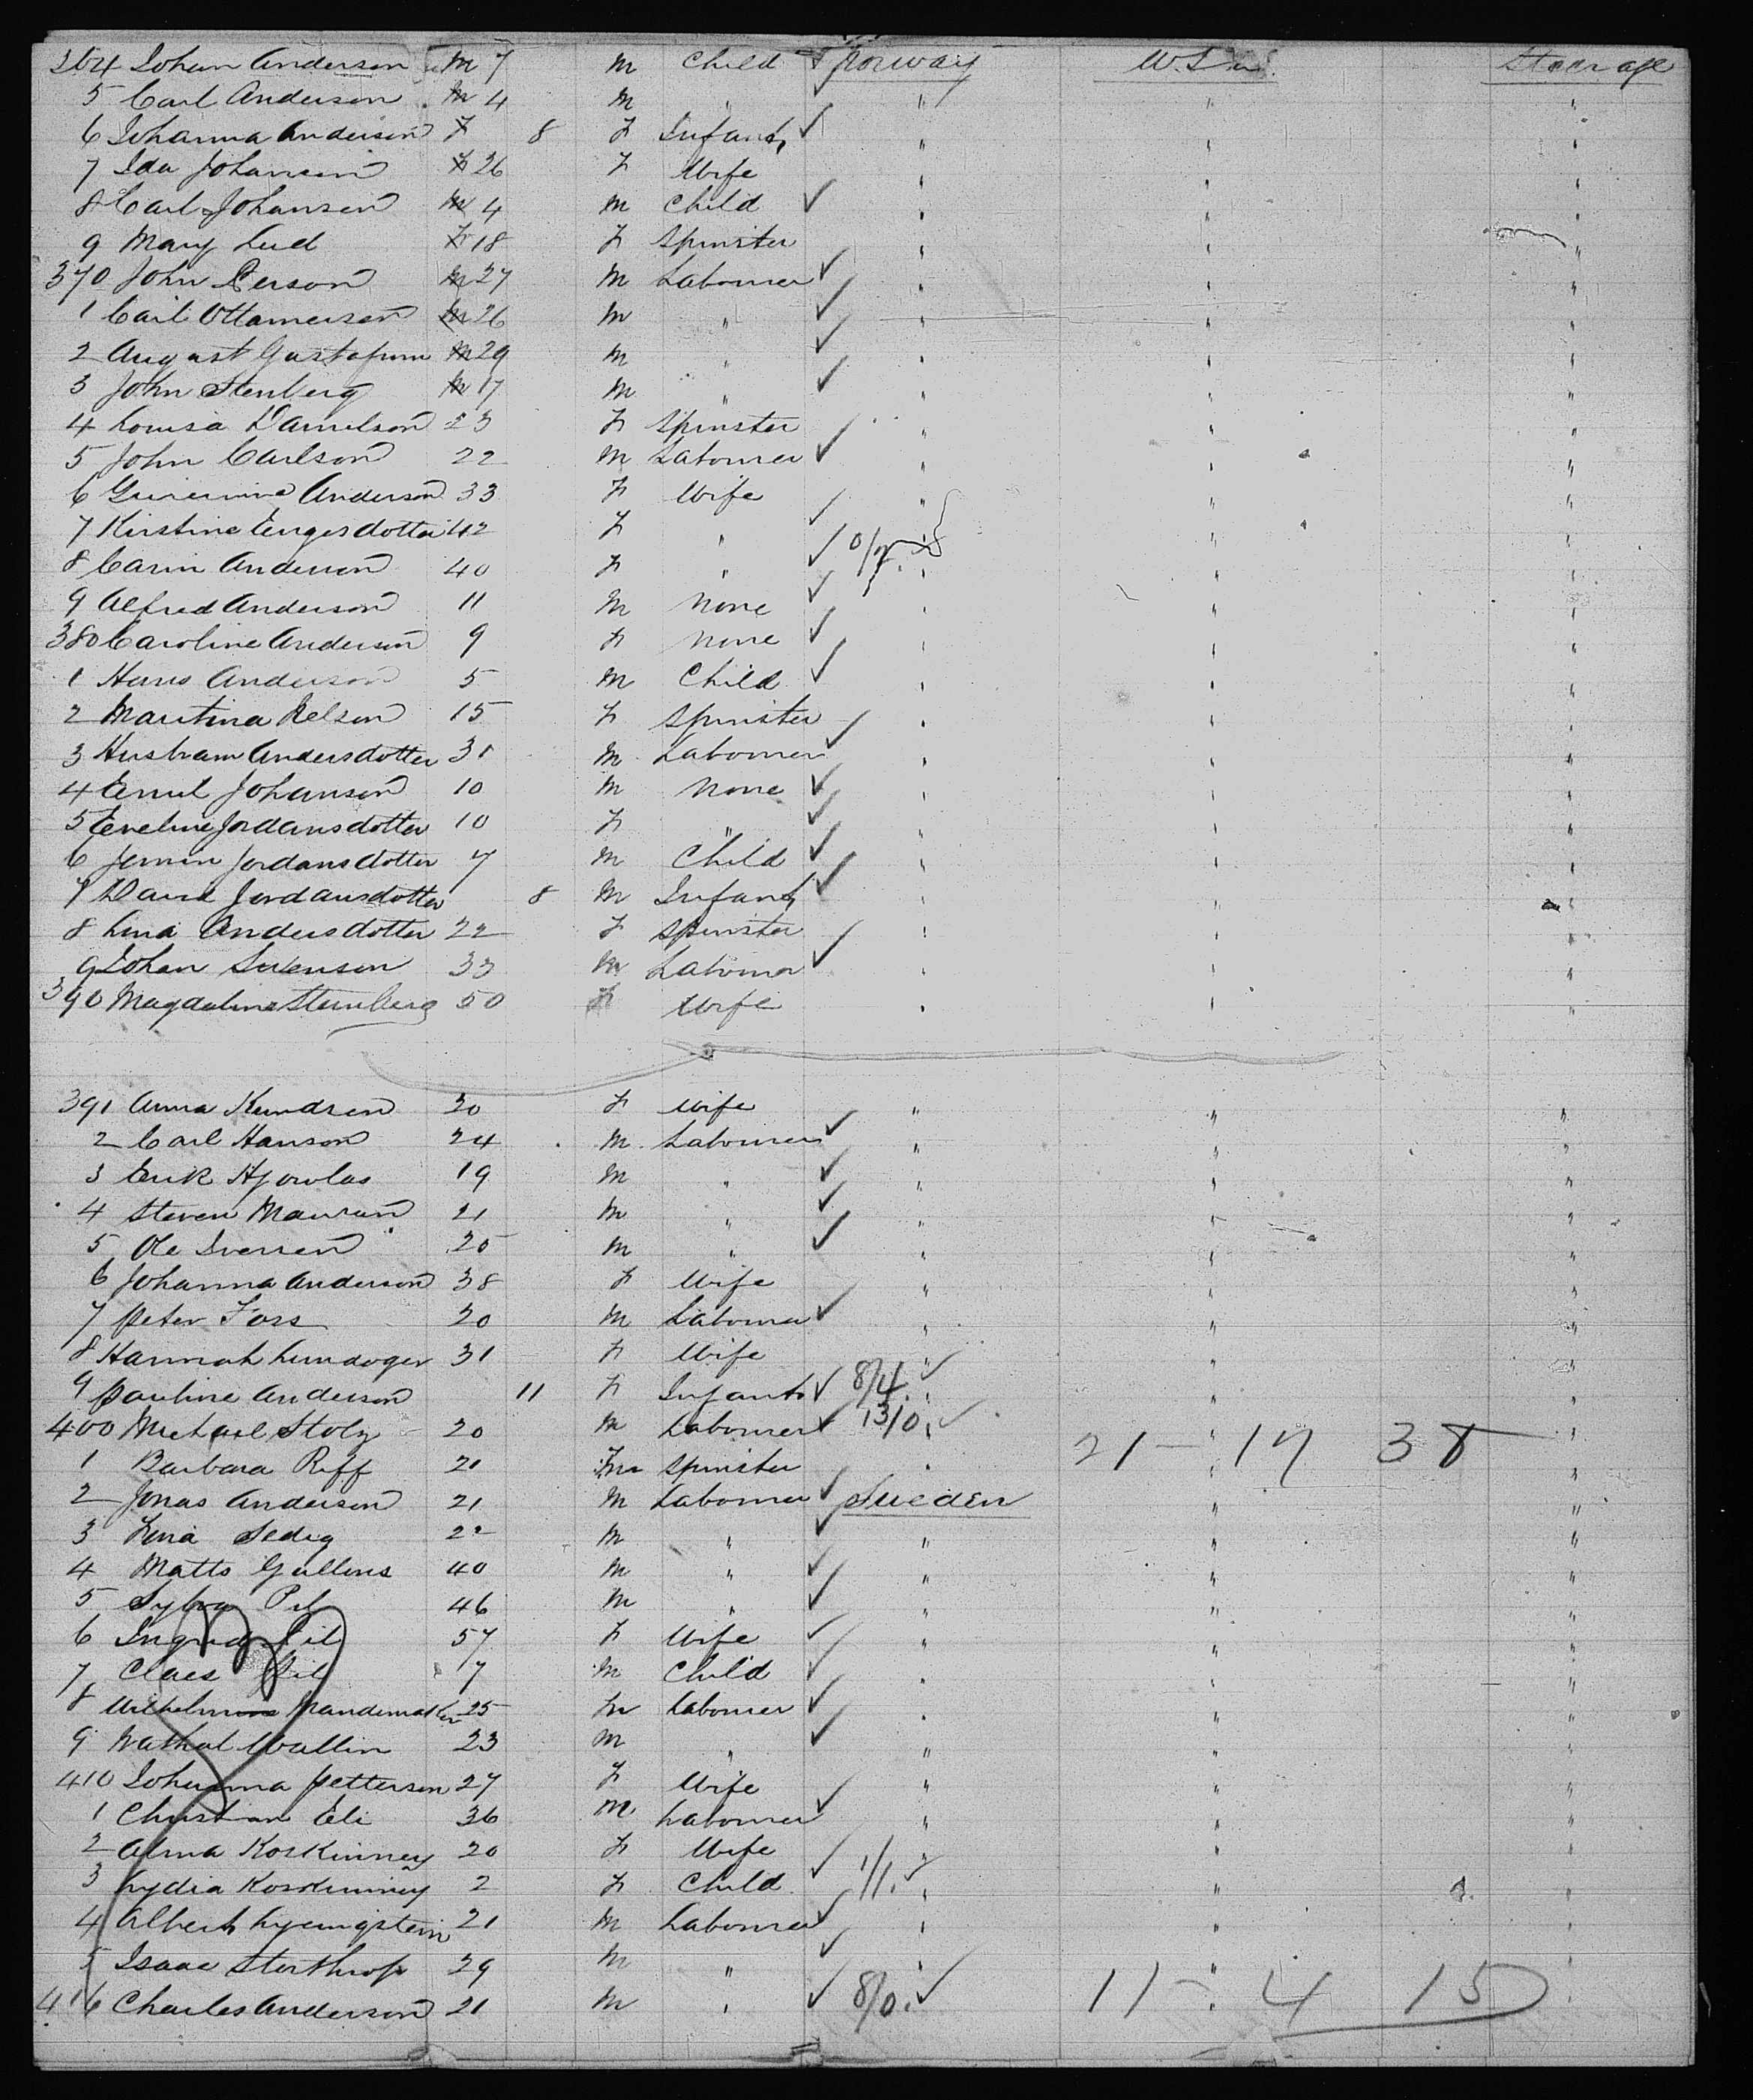 364 Johan Anderson M 7 M Child ✓ Norway U.S.A. Steerage
5 Carl Anderson M 4 M " ✓ " " "
6 Johanna Anderson F 8 F Infant ✓ " " "
7 Ida Johansen F 26 F Wife " " "
8 Carl Johansen M 4 M Child ✓ " " "
9 Mary Lud F 18 F Spinster " " "
370 John Person M 27 M Labourer ✓ " " "
1 Carl M 26 M " ✓ " " "
2 August Gustafson M 29 M " ✓ " " "
3 John Stenberg M 17 M " ✓ " " "
4 Louisa Danielson 23 F Spinster " " "
5 John Carlson 22 M Labourer ✓ " " "
6 Anderson 33 F Wife " " "
7 Kirstine Engesdotter 42 F " ✓ " " "
8 Carin Anderson 40 F " ✓ " " "
9 Alfred Anderson 11 M None ✓ " " "
380 Caroline Anderson 9 F None ✓ " " "
1 Hans Anderson 5 M Child ✓ " " "
2 Martina Nelson 15 F Spinster " " "
3 Andersdotter 31 M Labourer ✓ " " "
4 Emil Johanson 10 M None ✓ " " "
5 Eveline Jordansdotter 10 F " ✓ " " "
6 Jordansdotter 7 M Child ✓ " " "
7 David Jordansdotter 8 M Infant ✓ " " "
8 Lina Andersdotter 22 F Spinster " " "
9 Johan Swenson 33 M Labourer ✓ " " "
390 Magdalina Stenberg 50 F Wife " " "
391 Anna Kundsen 30 F Wife " " "
2 Carl Hanson 24 M Labourer ✓ " " "
3 Erik 19 M " ✓ " " "
4 Steven 21 M " ✓ " " "
5 Ole Iversen 25 M " ✓ " " "
6 Johanna Anderson 38 F Wife " " "
7 Peter Foss 20 M Labourer ✓ " " "
8 Hannah 31 F Wife " " "
9 Pauline Anderson 11 F Infant ✓ 8/4. ✓ " " "
400 Michael Stolz 20 M Labourer ✓ 13/0. ✓ " " "
1 Barbara Riff 21 F Spinster " 21 - 17 38 "
2 Jonas Anderson 21 M Labourer ✓ Sweden " "
3 Lena Sedig 22 M " ✓ " " "
4 Matts Gullens 40 M " ✓ " " "
5 Pil 46 M " ✓ " " "
6 Ingrid Pil 57 F Wife ✓ " " "
7 Claes Pil 7 M Child ✓ " " "
8 25 Labourer ✓ " " "
9 Wallin 23 M " ✓ " " "
410 Johanna Petterson 27 F Wife " " "
1 Christian Eli 36 M Labourer ✓ " " "
2 Alma Koskinney 20 F Wife " " "
3 Lydia Koskinney 2 F Child ✓ 1/1. ✓ " " "
4 Albert 21 M Labourer ✓ " " "
5 Isaac 29 M " ✓ " " "
416 Charles Anderson 21 M " ✓ 8/0. ✓ 11 - 4 15 "